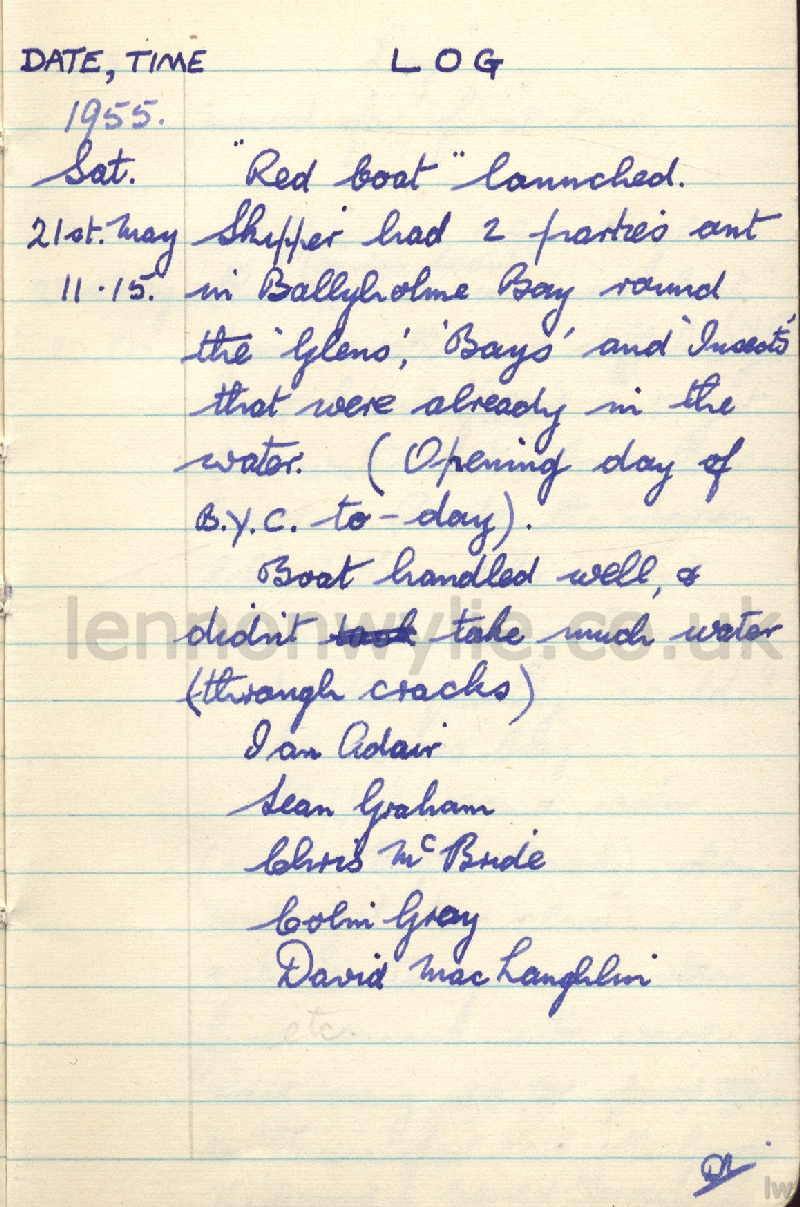 DATE, TIME LOG
1955.
Sat. "Red boat" launched.
21st. May Skipper had 2 parties out
11.15. in Ballyholme Bay round
the 'Glens', 'Bays' and 'Insects'
that were already in the
water. (Opening day of
B.Y.C. to-day).
Boat handled well, &
didn't took take much water
(through cracks)
Ian Adair
Sean Graham
Chris McBride
Colin Gray
David MacLaughlin
etc.
lennonwylie.co.uk
lw